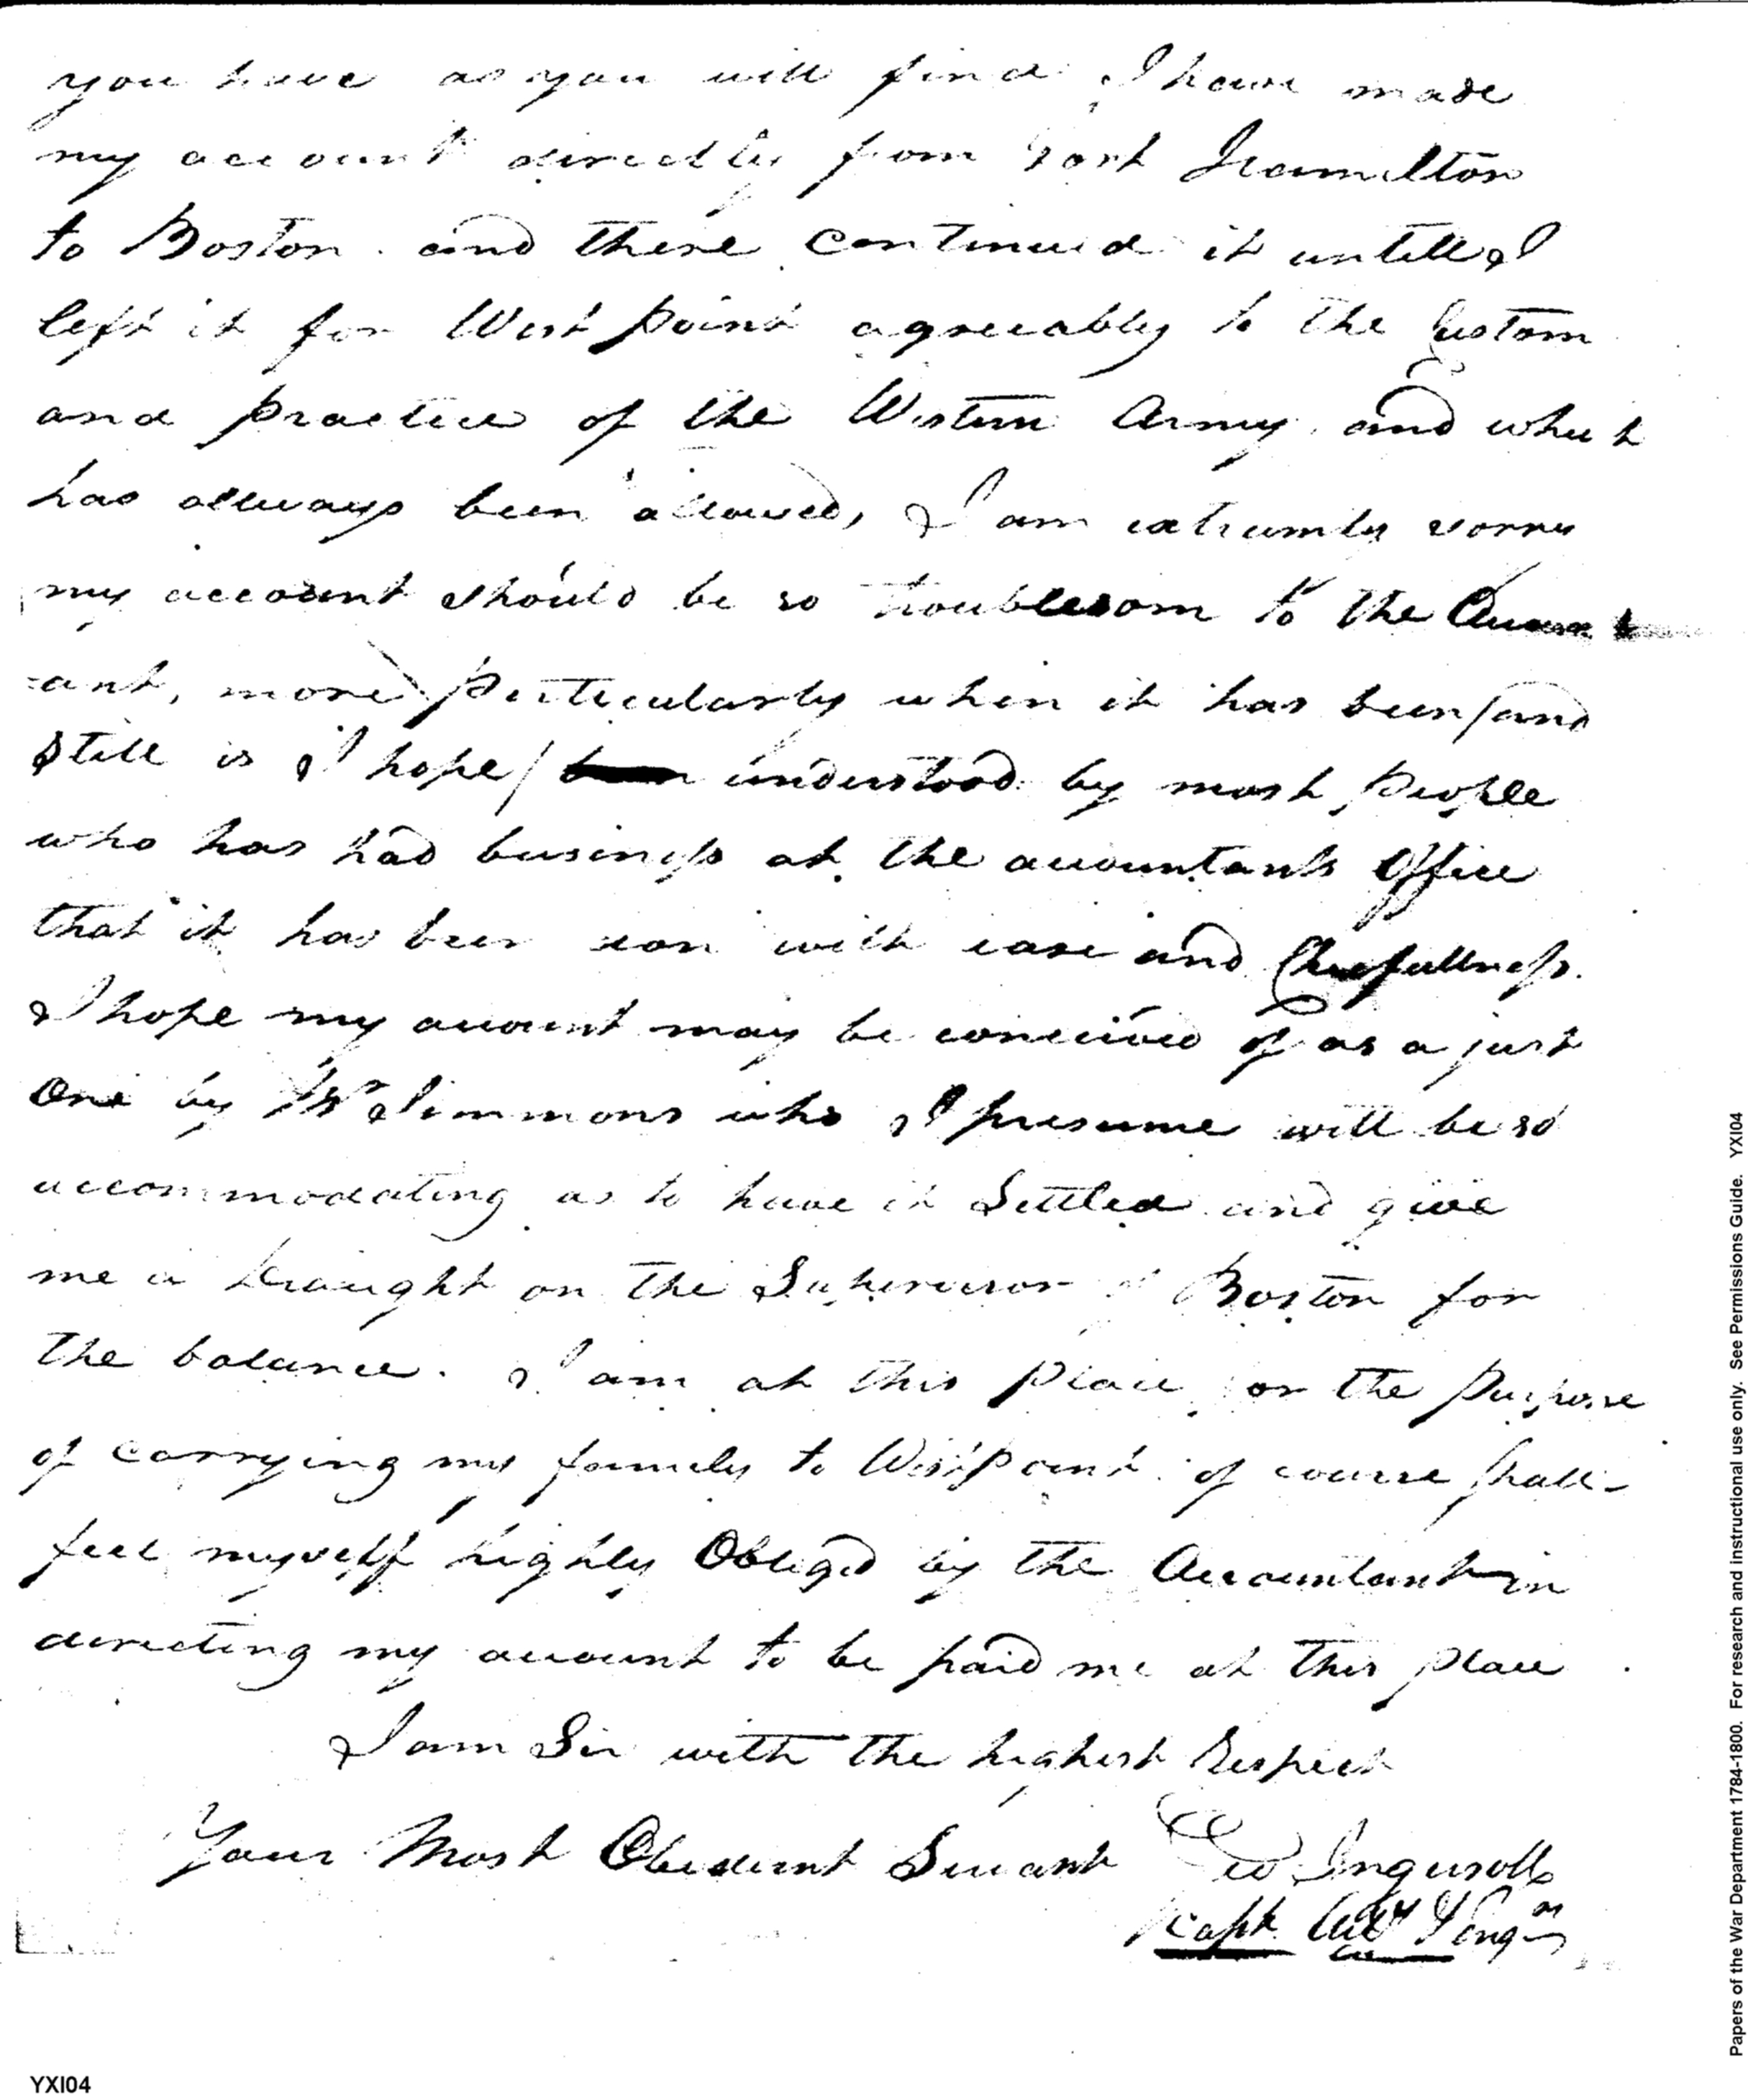 you have as you will find I have made
my account directly from Fort Hamilton
to Boston and there continued it untill I
left it for West point agreeably to the Custom
and practice of the Western Army and what
has allways been allowed, I am extreemly sorry
my account should be so troublesom to the
ant, more perticularly when it has been /and
still is I hope/ understood by most people
who has had business at the accountants Office
that it has been don with ease and Chearfullness.
I hope my account may be conceived of as a just
One by Mr Simmons who I presume will be so
accommodating as to have it Settled and give
me a draught on the Supervisor of Boston for
the balance. I am at this place for the purpose
of carrying my family to Westpoint of course shall
feel myself highly Obliged by the Accountant in
directing my account to be paid me at this place
I am Sir with the highest Respect
Your Most Obedient Servant Geo Ingersoll
Capt. Arty & Engrs
Papers of the War Department 1784-1800. For research and instructional use only. See Permissions Guide. YXI04
YXI04